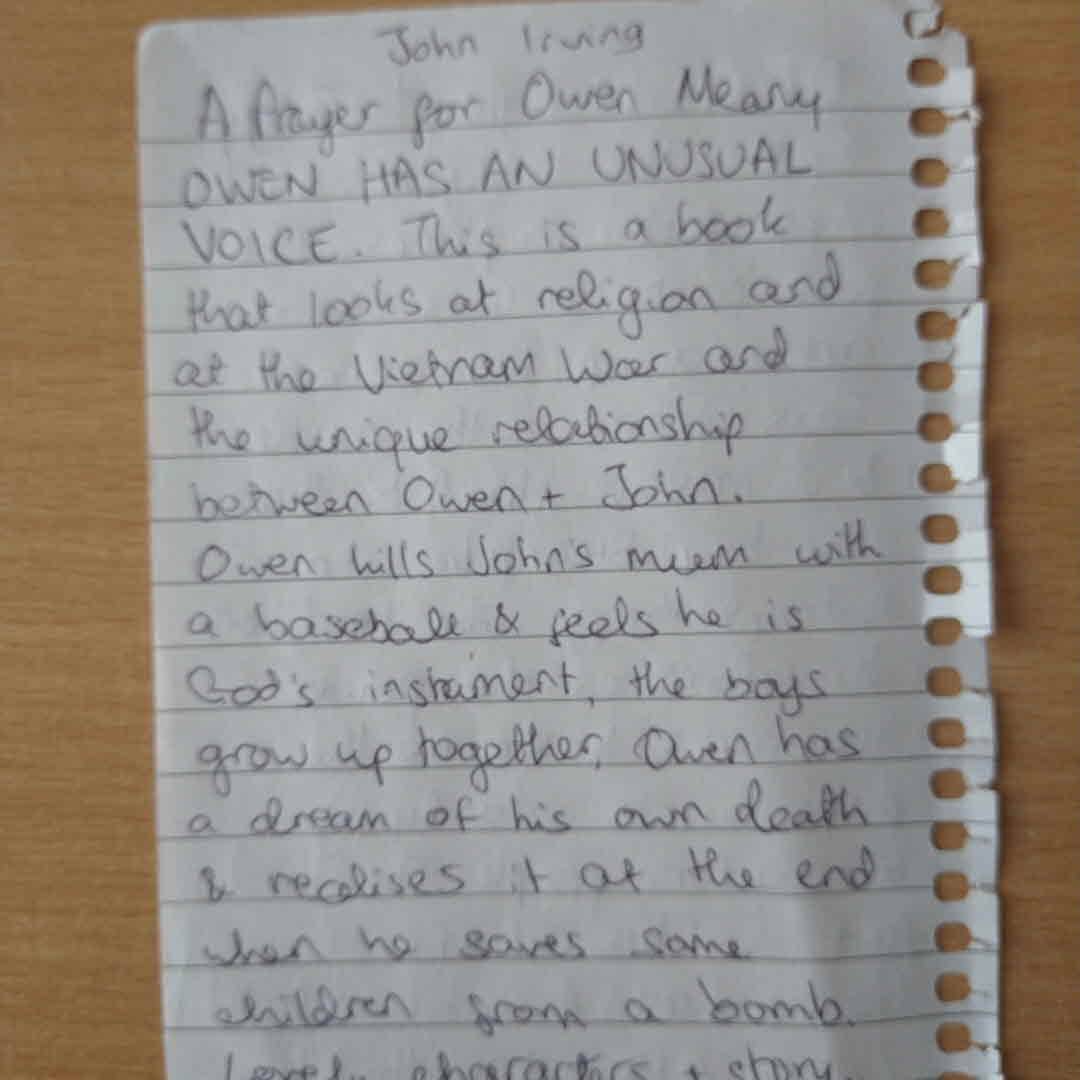 John Irving
A Prayer for Owen Meany
OWEN HAS AN UNUSUAL
VOICE. This is a book
that looks at religion and
at the Vietnam War and
the unique relationship
between Owen + John.
Owen kills John's mum with
a baseball & feels he is
God's instrument, the boys
grow up together, Owen has
a dream of his own death
& realises it at the end
when he saves some
children from a bomb.
Lovely characters + story.